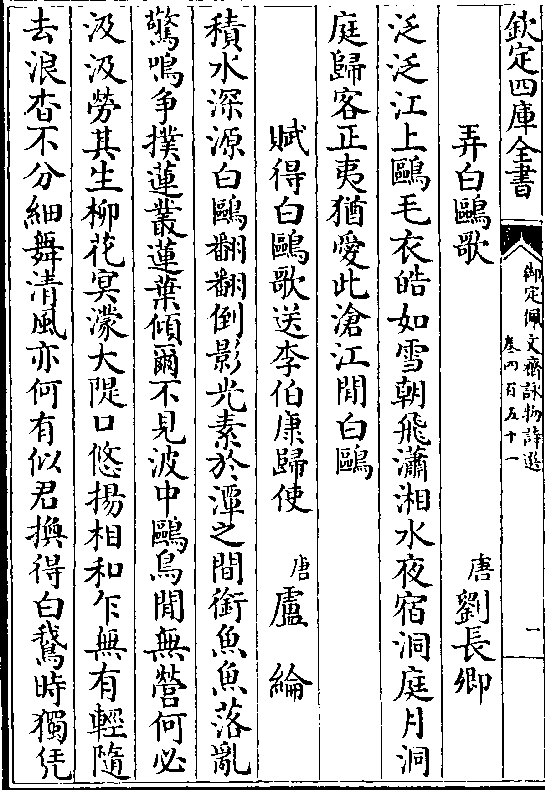 欽定四庫全書
御定佩文齋詠物詩選
卷四百五十一
一
弄白鷗歌 唐劉長卿
泛泛江上鷗毛衣皓如雪朝飛瀟湘水夜宿洞庭月洞
庭歸客正夷猶愛此滄江閒白鷗
賦得白鷗歌送李伯康歸使 唐盧綸
積水深源白鷗翻翻倒影光素於潭之間銜魚魚落亂
驚鳴争撲蓮叢蓮葉傾爾不見波中鷗鳥閒無營何必
汲汲勞其生柳花冥濛大隄口悠揚相和乍無有輕隨
去浪杳不分細舞清風亦何有似君換得白鵞時獨凭